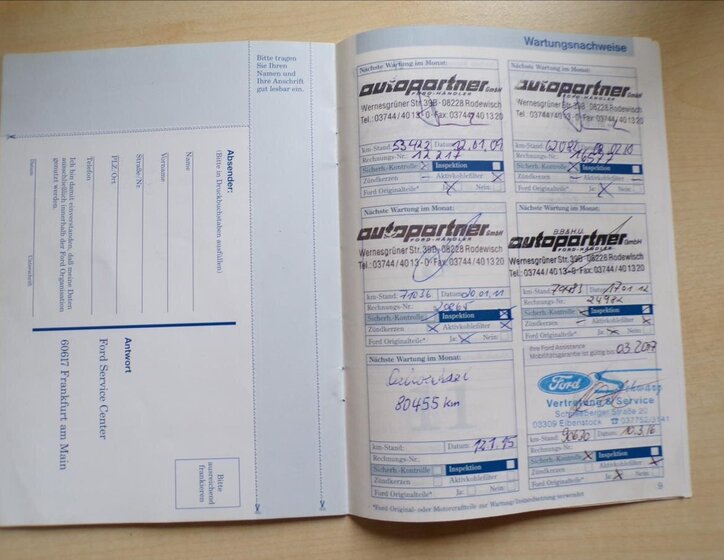 Bitte tragen
Sie Ihren
Namen und
Ihre Anschrift
gut lesbar ein.
Absender:
(Bitte in Druckbuchstaben ausfüllen)
Name
Vorname
Straße/Nr.
PLZ/Ort
Telefon
Ich bin damit einverstanden, daß meine Daten
ausschließlich innerhalb der Ford Organisation
genutzt werden.
Datum
Unterschrift
Antwort
Ford Service Center
60617 Frankfurt am Main
Bitte
ausreichend
frankieren
Wartungsnachweise
Nächste Wartung im Monat:
autopartner GmbH
FORD-HÄNDLER
Wernesgrüner Str. 39B · 08228 Rodewisch
Tel.: 03744/4013-0 · Fax: 03744/401320
km-Stand: 53422 Datum: 12.01.09
Rechnungs-Nr.: 12217
Sicherh.-Kontrolle Inspektion
Zündkerzen Aktivkohlefilter
Ford Originalteile* Ja: Nein:
Nächste Wartung im Monat:
autopartner GmbH
FORD-HÄNDLER
Wernesgrüner Str. 39B · 08228 Rodewisch
Tel.: 03744/4013-0 · Fax: 03744/401320
km-Stand: Datum:
Rechnungs-Nr.: 16577
Sicherh.-Kontrolle Inspektion
Zündkerzen Aktivkohlefilter
Ford Originalteile* Ja: Nein:
Nächste Wartung im Monat:
autopartner GmbH
FORD-HÄNDLER
Wernesgrüner Str. 39B · 08228 Rodewisch
Tel.: 03744/4013-0 · Fax: 03744/401320
km-Stand: 71036 Datum: 20.01.11
Rechnungs-Nr.: 20864
Sicherh.-Kontrolle Inspektion
Zündkerzen Aktivkohlefilter
Ford Originalteile* Ja: Nein:
Nächste Wartung im Monat:
autopartner GmbH
FORD-HÄNDLER
Wernesgrüner Str. 39B · 08228 Rodewisch
Tel.: 03744/4013-0 · Fax: 03744/401320
km-Stand: Datum: 17.01.12
Rechnungs-Nr.: 24972
Sicherh.-Kontrolle Inspektion
Zündkerzen Aktivkohlefilter
Ford Originalteile* Ja: Nein:
Nächste Wartung im Monat:
Ölwechsel
80455 km
km-Stand: Datum: 12.1.15
Rechnungs-Nr.:
Sicherh.-Kontrolle Inspektion
Zündkerzen Aktivkohlefilter
Ford Originalteile* Ja: Nein:
Ihre Ford Assistance
Mobilitätsgarantie ist gültig bis 03.2017
Ford
Vertretung & Service
Schneeberger Straße 20
03309 Eibenstock ☎ 037752/3141
km-Stand: 90620 Datum: 10.3.16
Rechnungs-Nr.:
Sicherh.-Kontrolle Inspektion
Zündkerzen Aktivkohlefilter
Ford Originalteile* Ja: Nein:
*Ford Original- oder Motorcraftteile zur Wartung/Instandsetzung verwendet
9